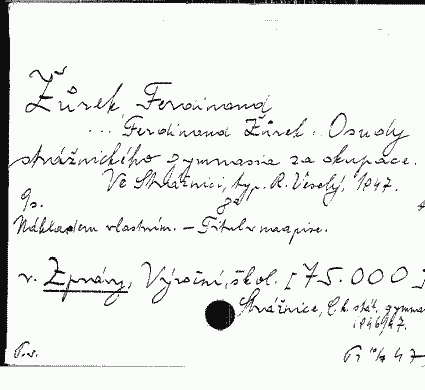 Žůrek, Ferdinand
... Ferdinand Žůrek. Osudy
strážnického gymnasia za okupace.
Ve Strážnici, typ. R. Veselý, 1947.
8°
9 s.
Nákladem vlastním. – Titul v maapise.
v. Zprávy, Výroční, škol. [75.000]
Strážnice, Č. k. stát. gymna
1946/47.
47